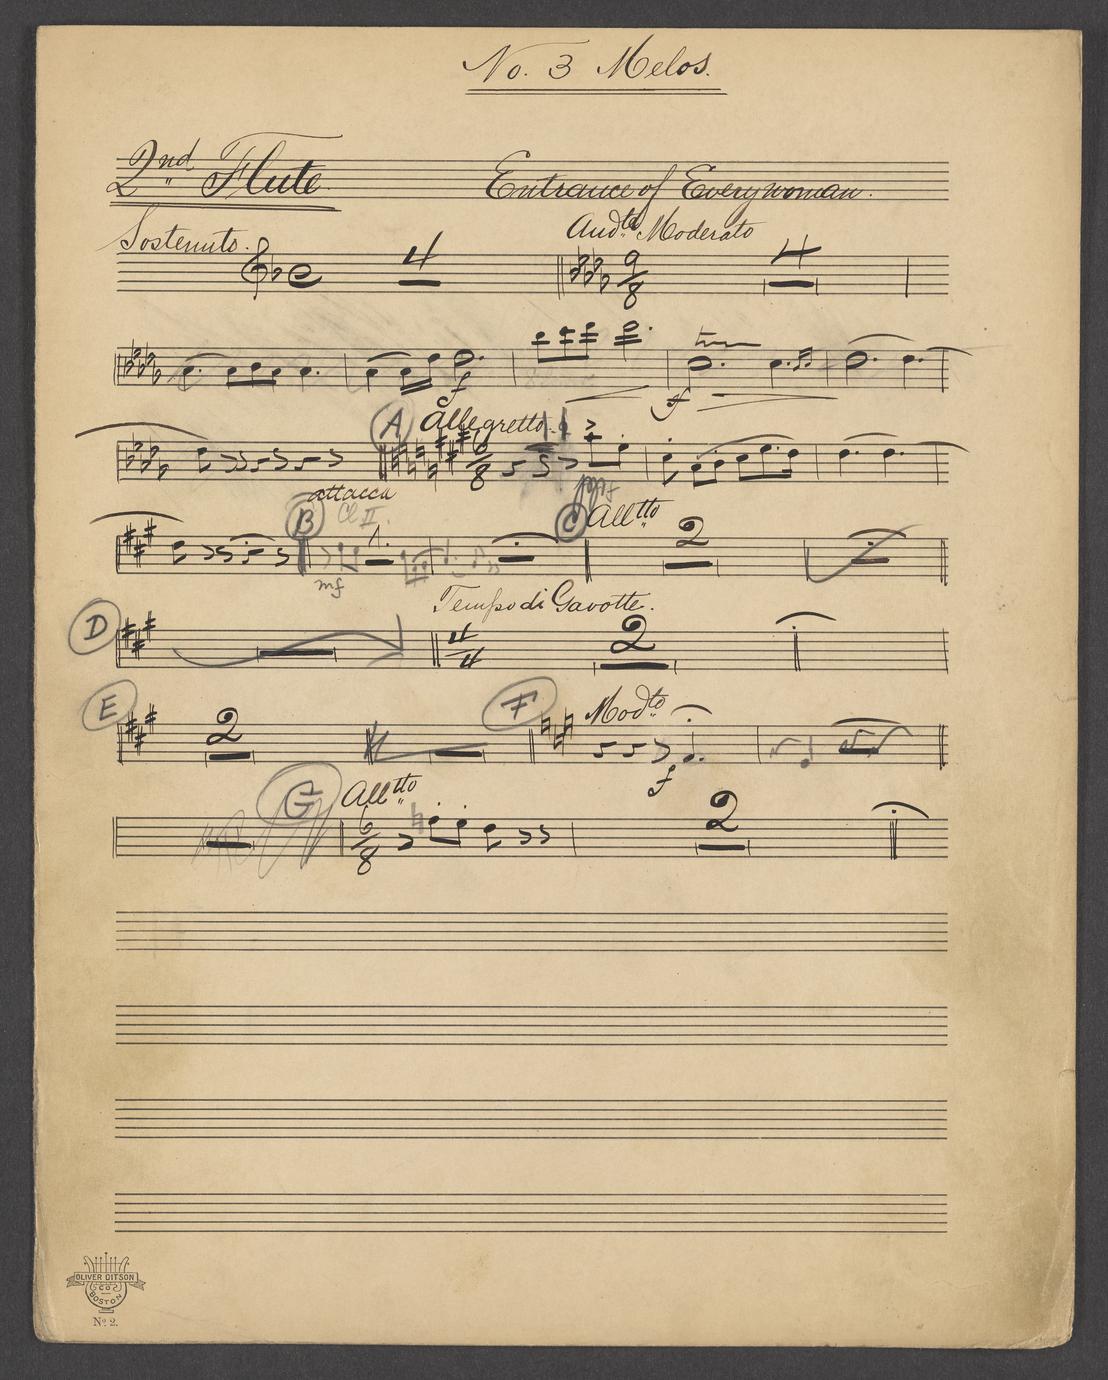 No. 3 Melos.
2nd Flute. Entrance of Everywoman.
Sostenuto. 4 Andte Moderato 9/8 4
f f
A Allegretto. 6/8
attacca
B Cl II. 1. C Alltto 2
mf
D Tempo di Gavotte. 4/4 2
E 2 F Modto
f
G Alltto 6/8 2
OLIVER DITSON
CO
BOSTON
No 2.